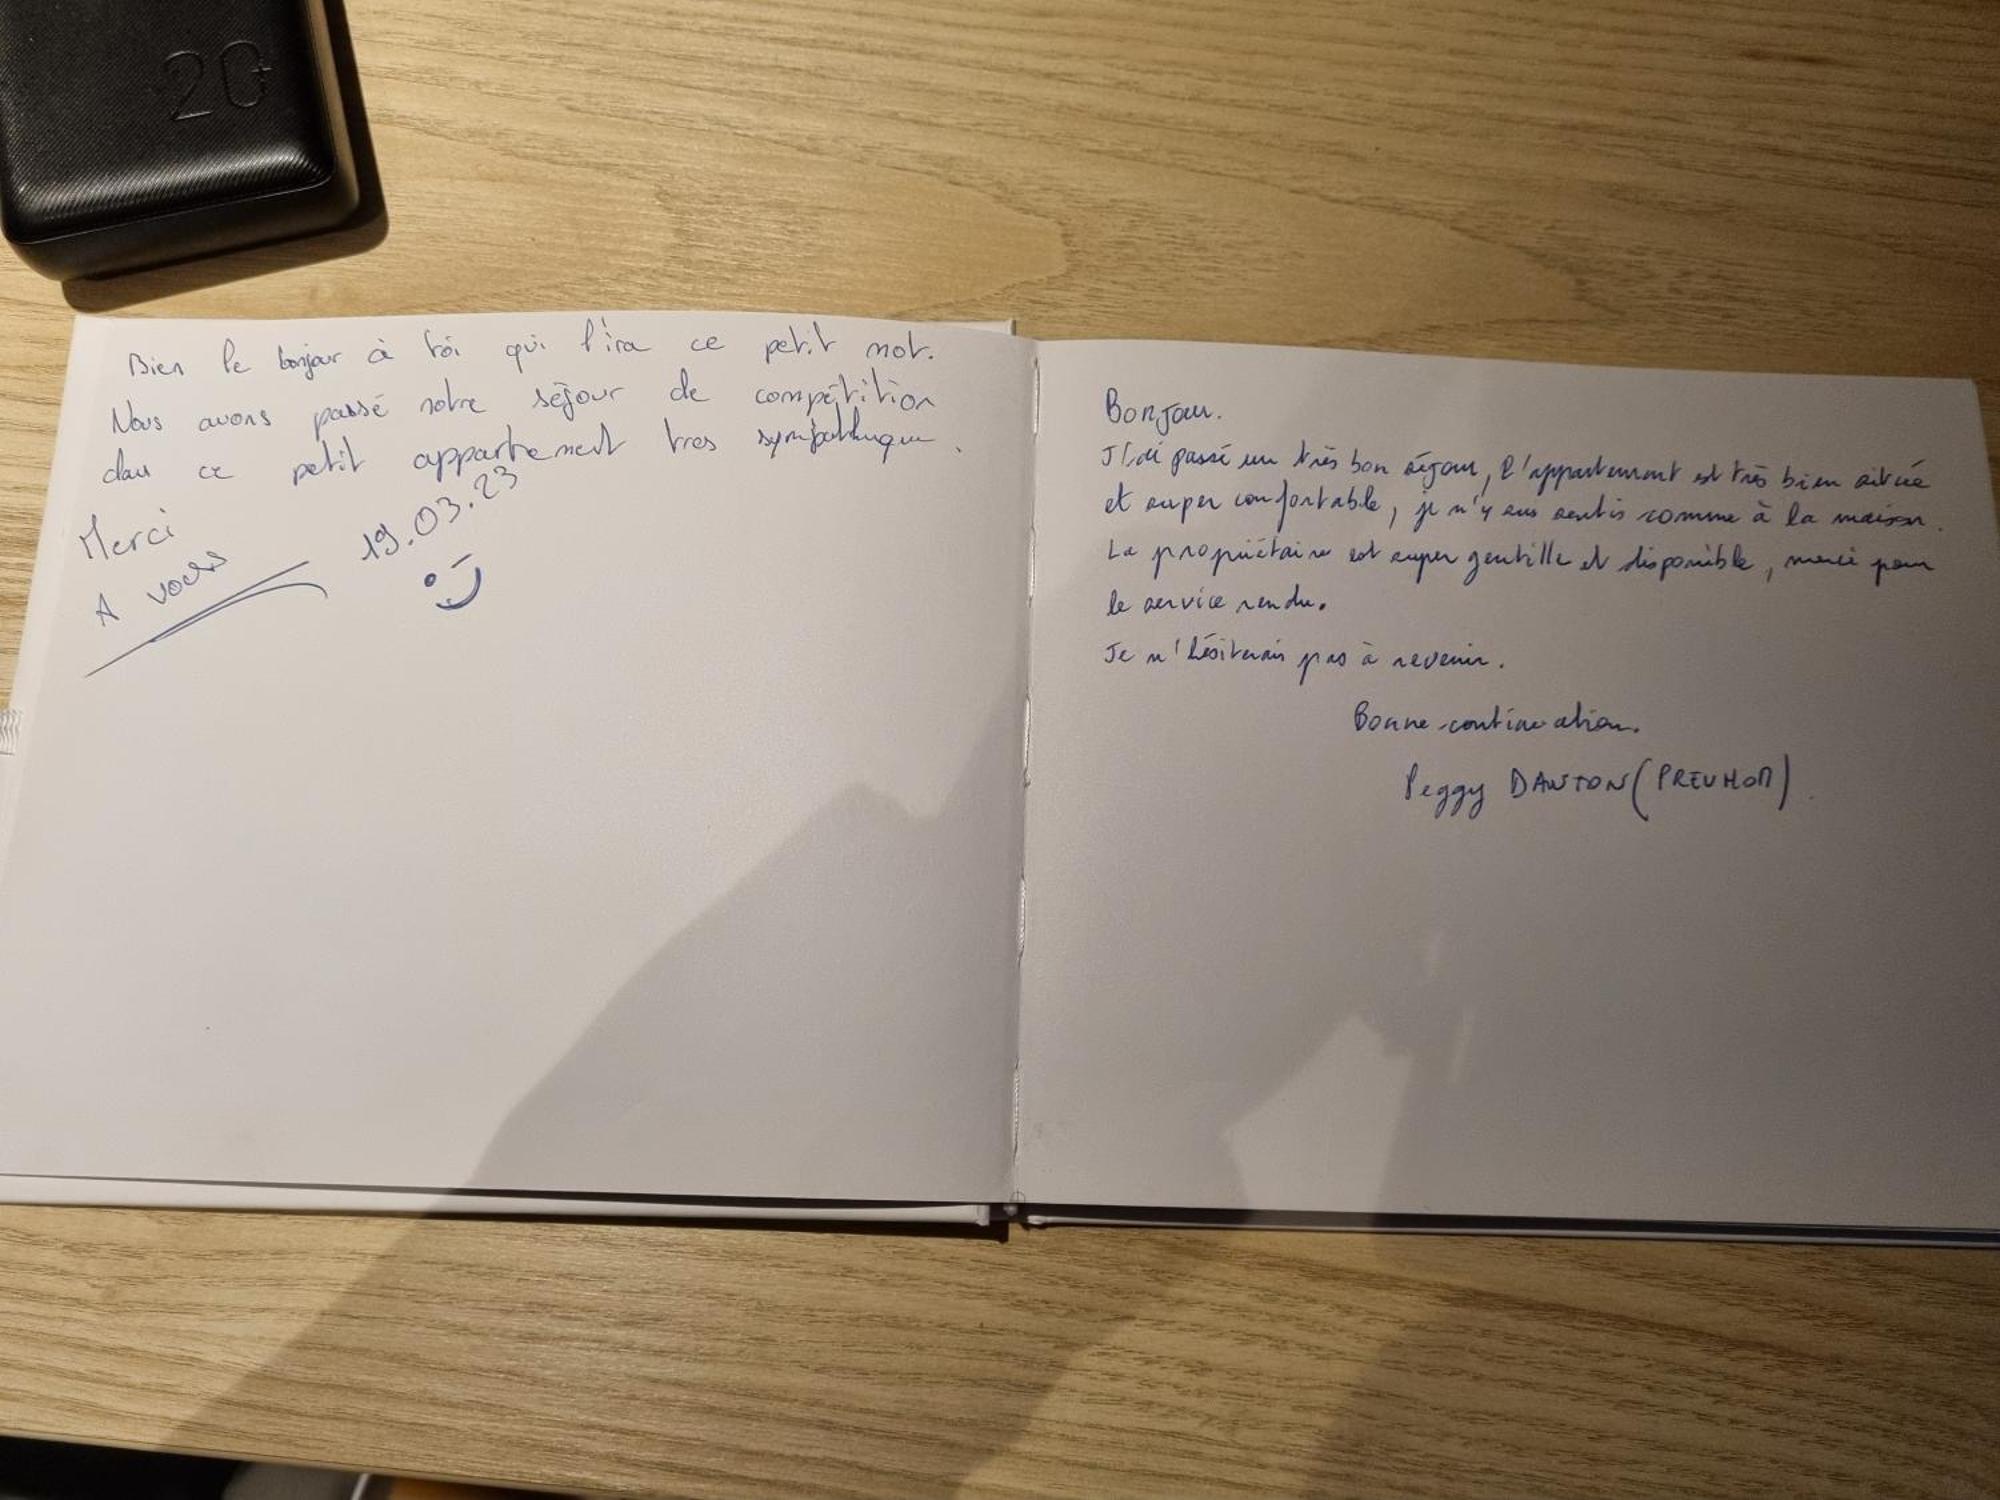 20
Bien le bonjour à toi qui l'ira ce petit mot.
Nous avons passé notre séjour de compétition
dans ce petit appartement tres sympathique.
Merci
A vous
19.03.23
Bonjour.
J'ai passé un très bon séjour, l'appartement est très bien située
et super confortable, je m'y suis sentis comme à la maison.
La propriétaire est super gentille et disponible, merci pour
le service rendu.
Je n'hésiterais pas à revenir.
Bonne continuation.
Peggy DANTON (PREUHOM)